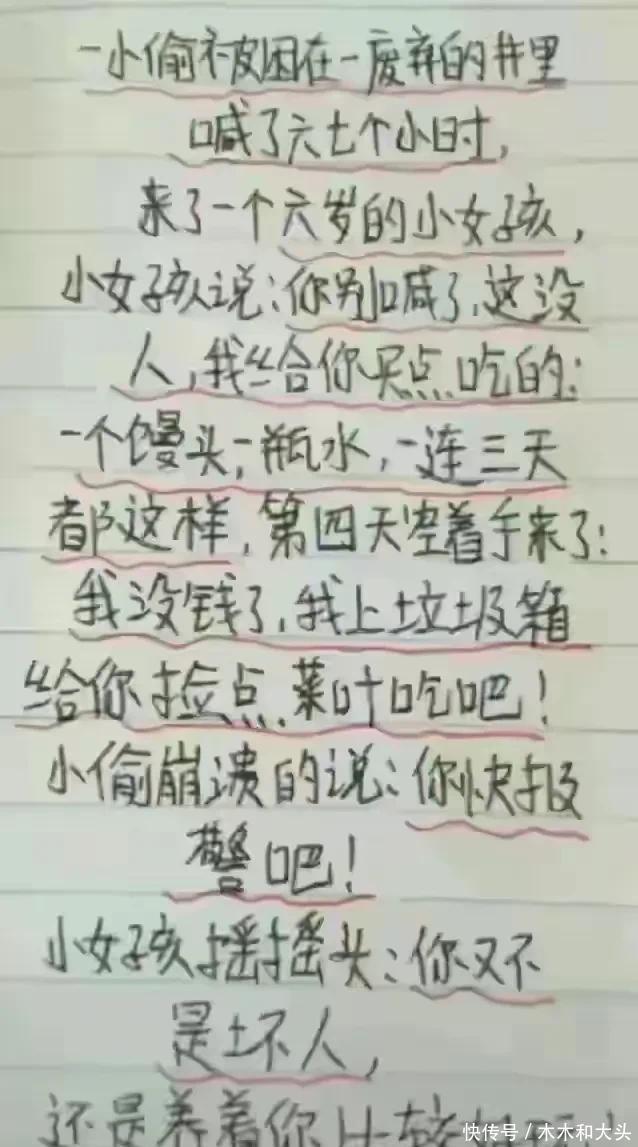 一小偷被困在一废弃的井里
喊了六七个小时,
来了一个六岁的小女孩,
小女孩说:你别喊了,这没
人,我给你买点吃的:
一个馒头,一瓶水,一连三天
都这样,第四天空着手来了:
我没钱了,我上垃圾箱
给你捡点菜叶吃吧!
小偷崩溃的说:你快报
警吧!
小女孩摇摇头:你又不
是坏人,
还是养着你比较
快传号/木木和大头